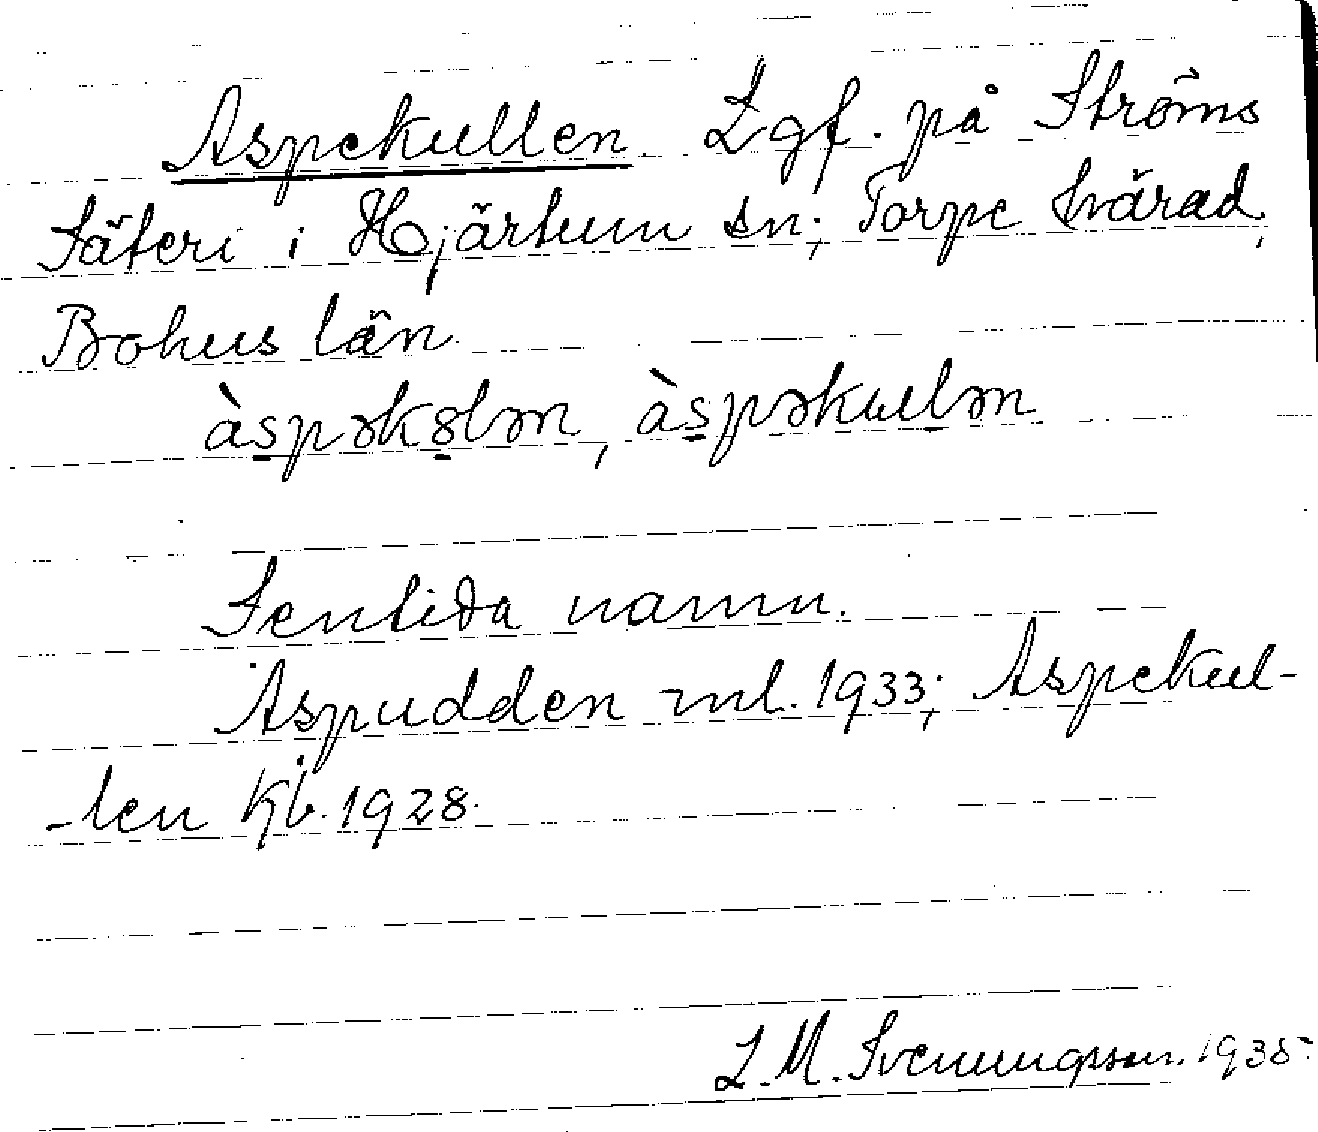 Aspekullen. Lgf. på Ströms
Säteri i Hjärtum sn; Torpe härad,
Bohus län.
àspəkɞlən, àspəkulən
Sentida namn.
Aspudden ml. 1933; Aspekul-
-len Kb. 1928.
L. M. Svenungsson. 1935.